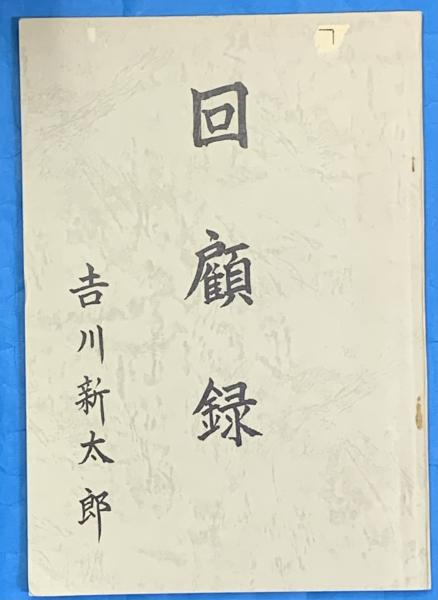 回顧録
𠮷川新太郎